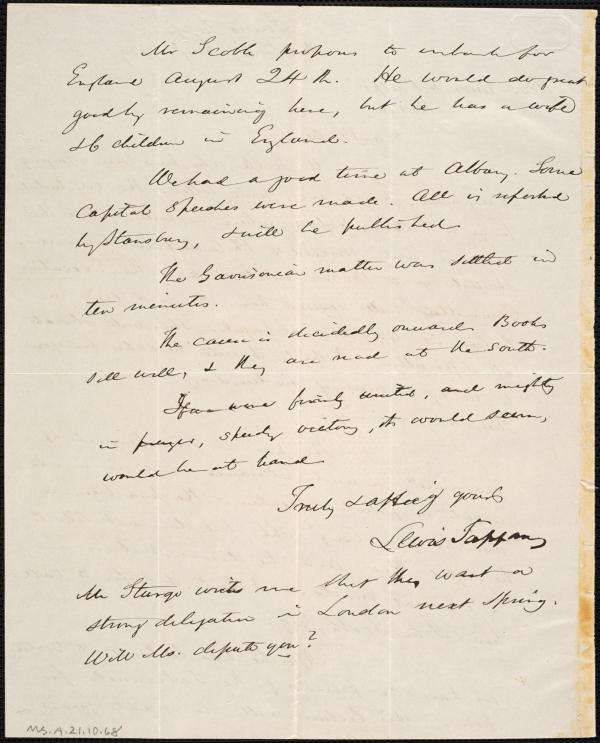 Mr Scoble proposes to embark for
England August 24th. He would do great
good by remaining here, but he has a wife
& 6 children in England.
We had a good time at Albany. Some
capital speeches were made. All is reported
by Stansbury, & will be published.
The Garrisonian matter was settled in
ten minutes.
The cause is decidedly onward. Books
sell well, & they are read at the South.
If we were firmly united, and mighty
in prayer, speedy victory, it would seem,
would be at hand
Truly & affec'y yours
Lewis Tappan
Mr Sturge writes me that they want a
strong delegation in London next Spring.
Will Ms. depute you?
MS.A.21.10.68